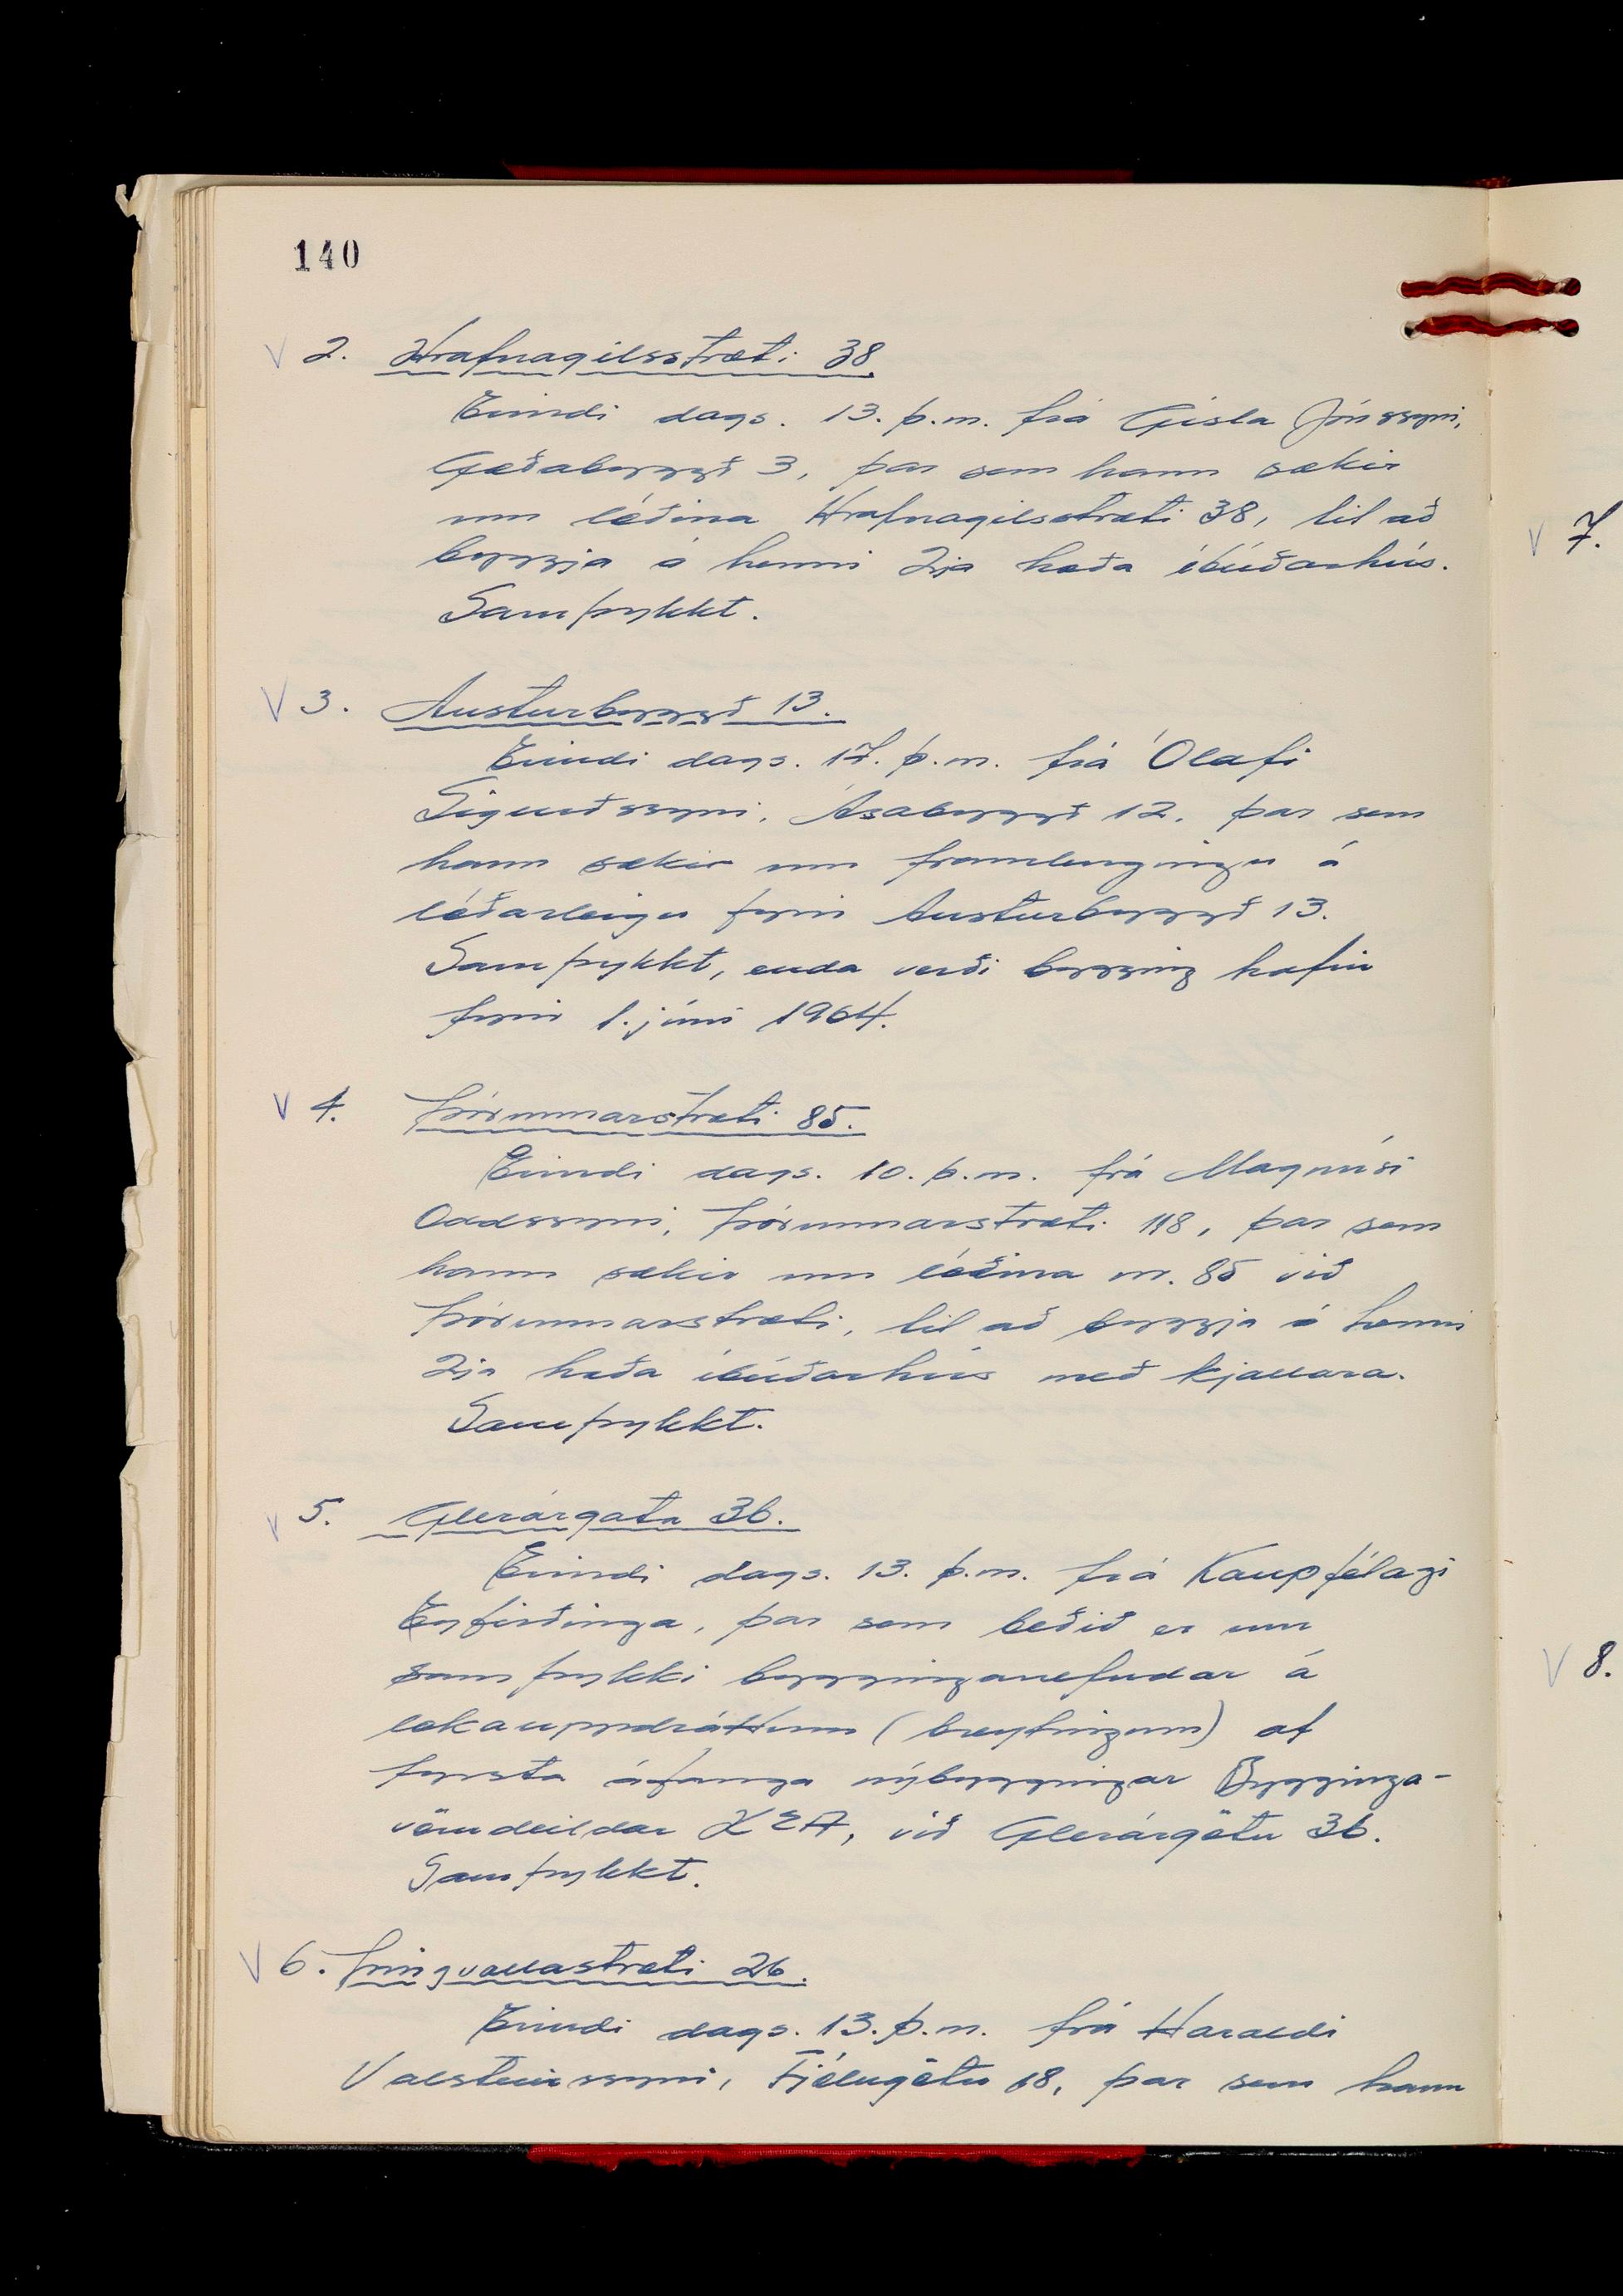 140
V 2. Hrafnagilsstræti 38.
Erindi dags. 13. þ.m. frá Gísla Jónssyni,
Goðabyggð 3, þar sem hann sækir
um lóðina Hrafnagilsstræti 38, til að
byggja á henni 2ja hæða íbúðarhús.
Samþykkt.
V 3. Austurbyggð 13.
Erindi dags. 17. þ.m. frá Ólafi
Sigurðssyni, Ásabyggð 12, þar sem
hann sækir um framlengingu á
lóðarleigu fyrir Austurbyggð 13.
Samþykkt, enda verði bygging hafin
fyrir 1. júní 1964.
V 4. Þórunnarstræti 85.
Erindi dags. 10. þ.m. frá Magnúsi
Oddssyni, Þórunnarstræti 118, þar sem
hann sækir um lóðina nr. 85 við
Þórunnarstræti, til að byggja á henni
2ja hæða íbúðarhús með kjallara.
Samþykkt.
V 5. Glerárgata 36.
Erindi dags. 13. þ.m. frá Kaupfélagi
Eyfirðinga, þar sem beðið er um
samþykki bygginganefndar á
lokauppdráttum (breytingum) af
fyrsta áfanga nýbyggingar Bygginga-
vörudeildar KEA, við Glerárgötu 36.
Samþykkt.
V 6. Þingvallastræti 26.
Erindi dags. 13. þ.m. frá Haraldi
Valsteinssyni, Fjólugötu 18, þar sem hann
V 7.
V 8.